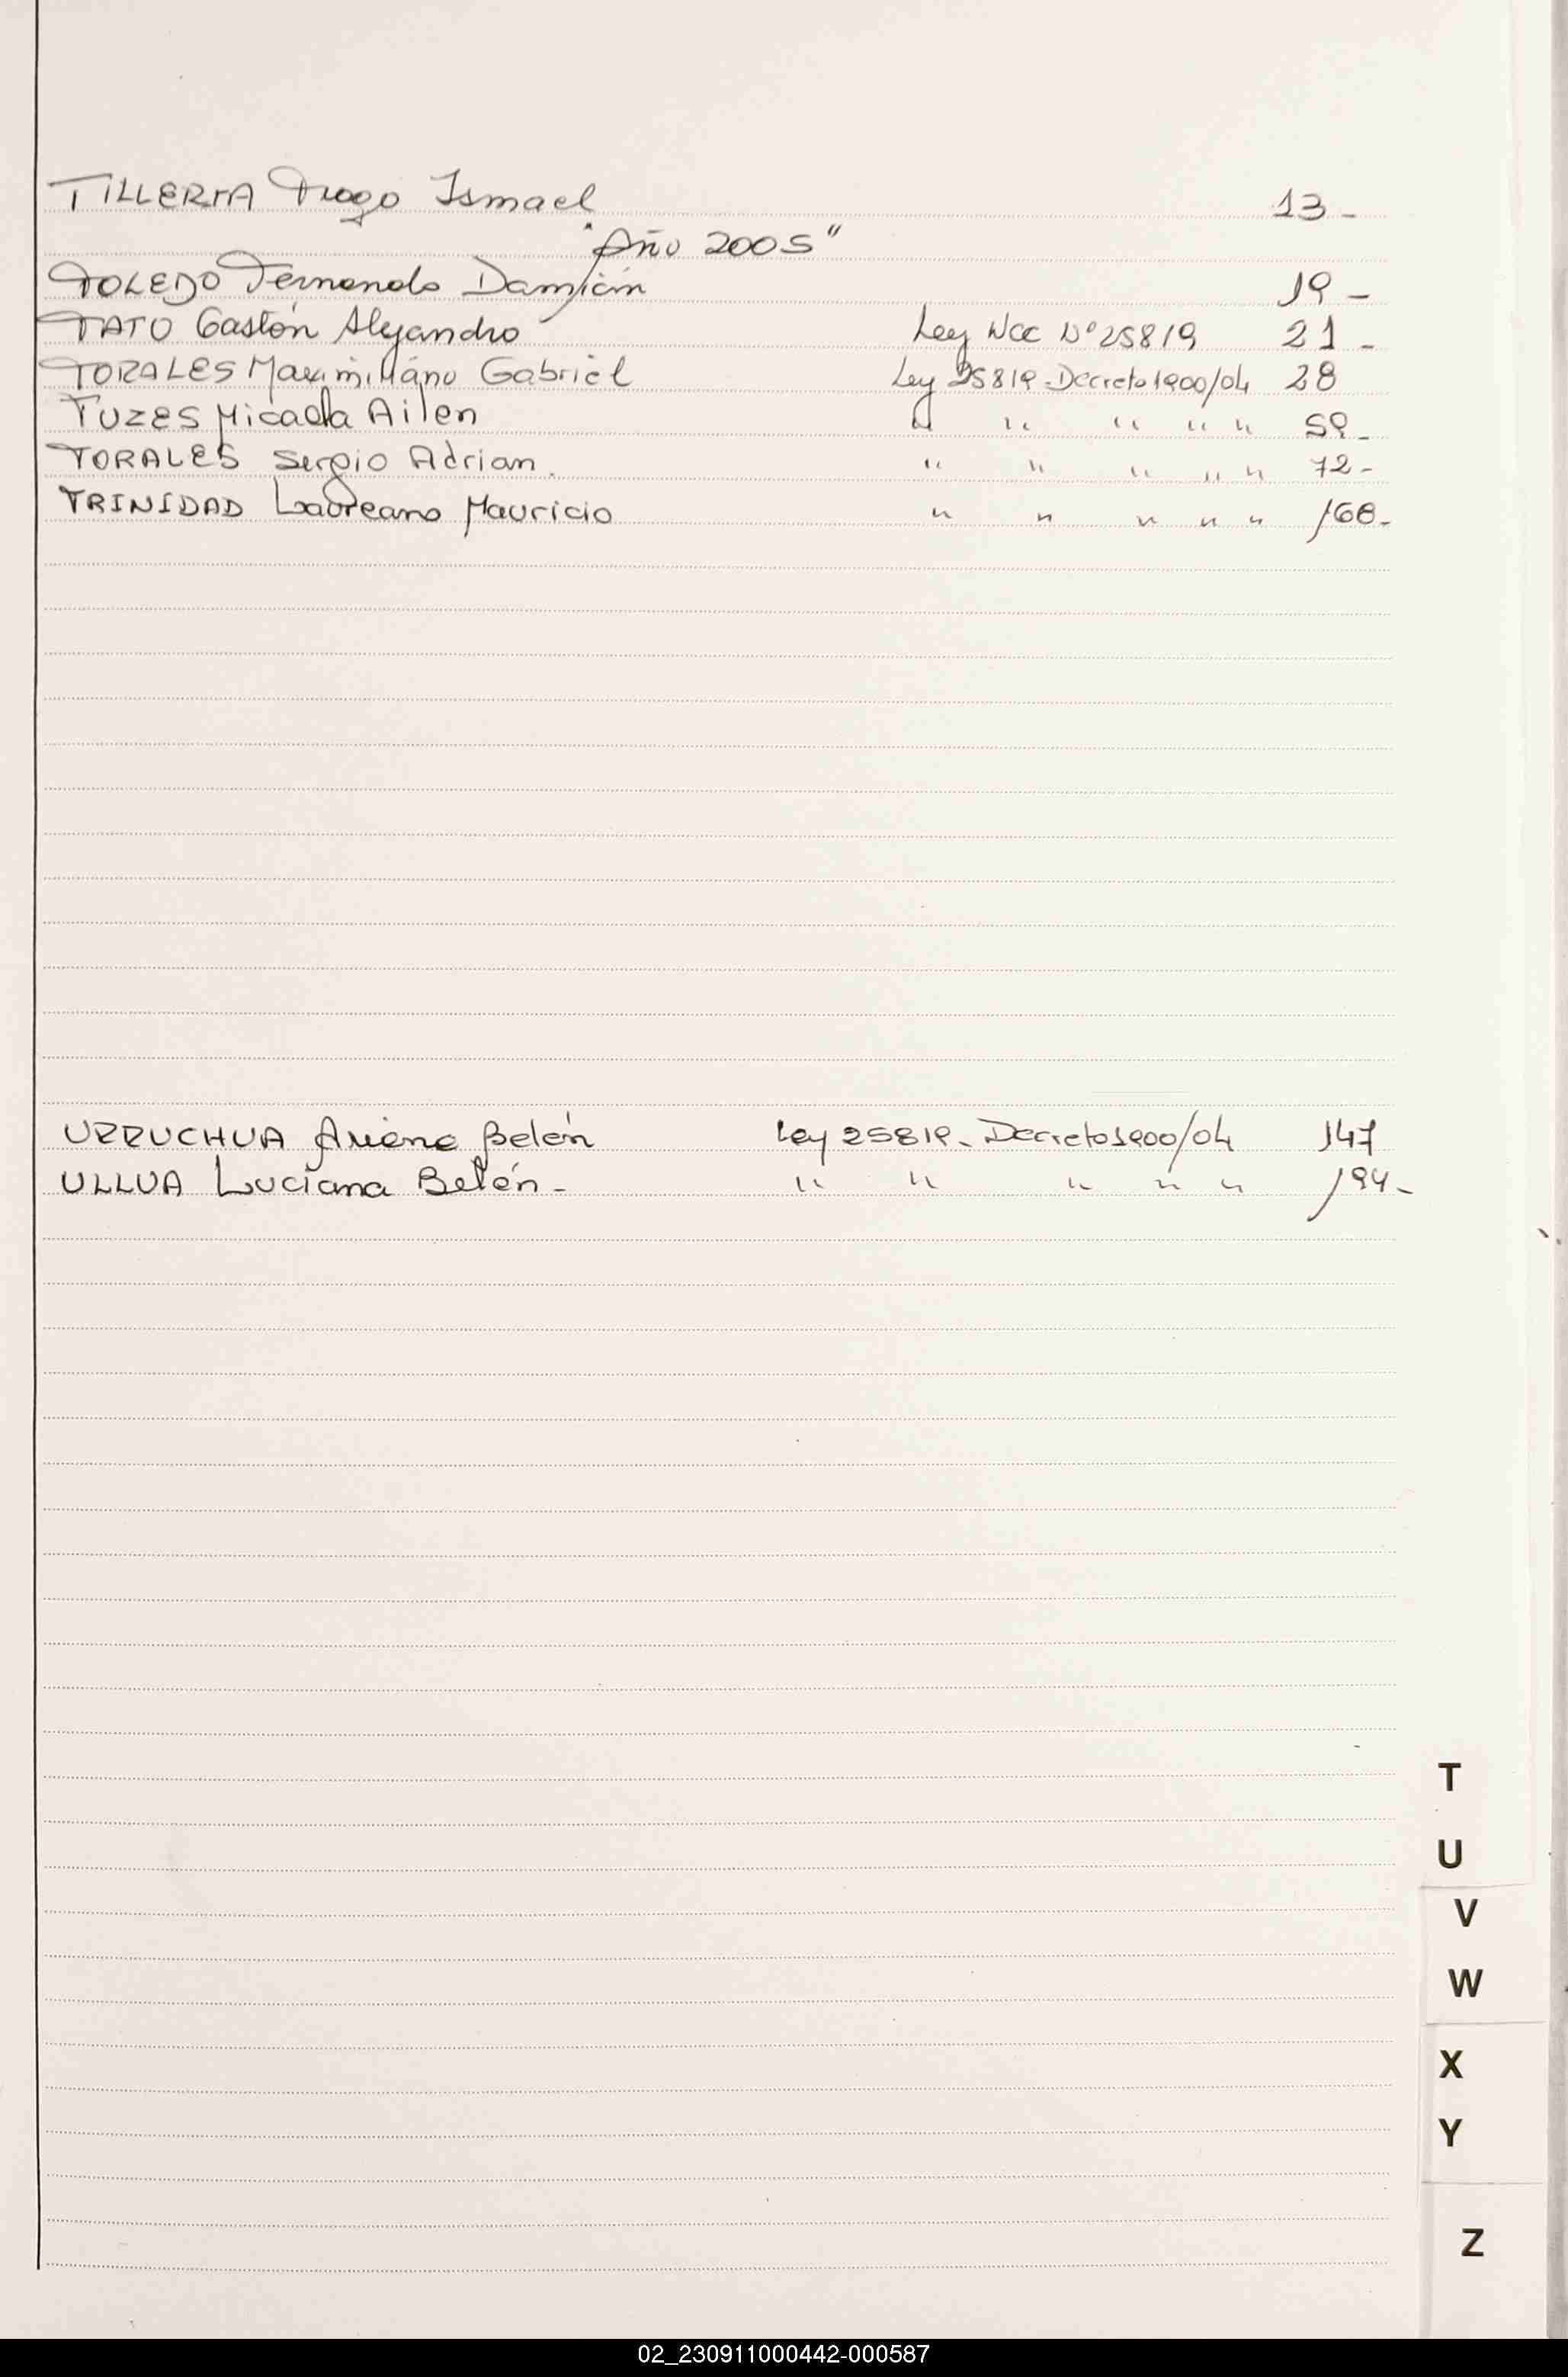 TILLERIA Tiago Ismael 13-
"Año 2005"
TOLEDO Fernando Damián 19-
TATO Gastón Alejandro Ley Nac Nº 25819 21-
TORALES Maximiliano Gabriel Ley 25819-Decreto 1900/04 28
TUZES Micaela Ailen " " " " " 59-
TORALES Sergio Adrian. " " " " " 72-
TRINIDAD Laureano Mauricio " " " " " 168-
URRUCHUA Ariana Belén Ley 25819-Decreto 1900/04 147
ULLUA Luciana Belén- " " " " " 194-
T
U
V
W
X
Y
Z
02_230911000442-000587